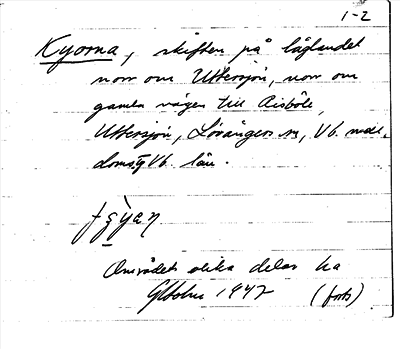 1-2
Kyorna, skiften på låglandet
norr om Uttersjön, norr om
gamla vägen till Risböle,
Uttersjön, Lövångers sn, Vb. 
Vb. län.
Området olika delar ha
1947 (forts)